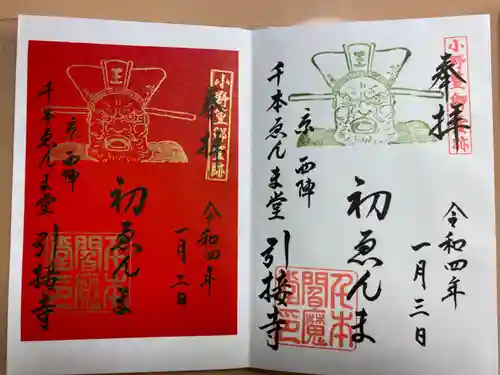 小野篁
奉拝
令和四年
一月三日
王
初ゑんま
京西陣
千本ゑんま堂
引接寺
千本
閻魔
堂印
小野篁
奉拝
令和四年
一月二日
王
初ゑんま
京西陣
千本ゑんま堂
引接寺
千本
閻魔
堂印